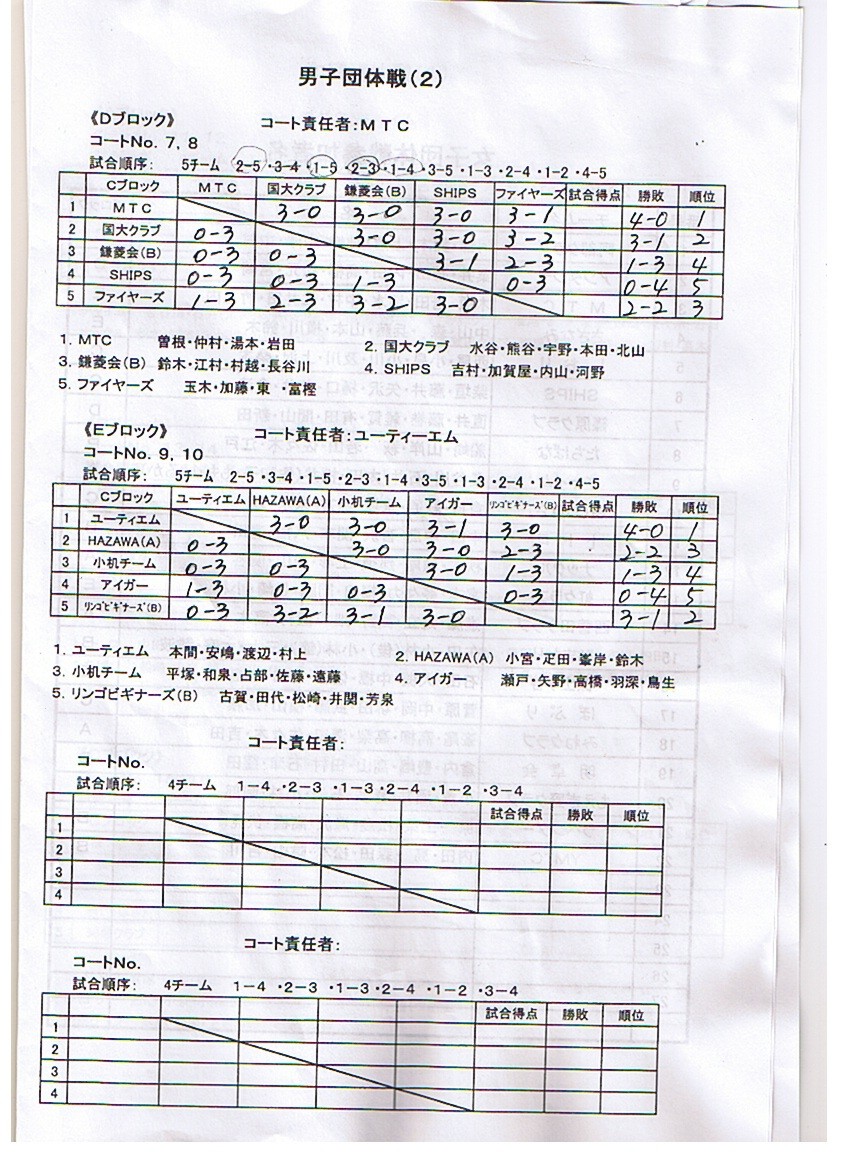 男子団体戦(2)
《Dブロック》 コート責任者:MTC
コートNo. 7, 8
試合順序: 5チーム 2-5・3-4・1-5・2-3・1-4・3-5・1-3・2-4・1-2・4-5
Cブロック MTC 国大クラブ 鎌菱会(B) SHIPS ファイヤーズ 試合得点 勝敗 順位
1 MTC 3-0 3-0 3-0 3-1 4-0 1
2 国大クラブ 0-3 3-0 3-0 3-2 3-1 2
3 鎌菱会(B) 0-3 0-3 3-1 2-3 1-3 4
4 SHIPS 0-3 0-3 1-3 0-3 0-4 5
5 ファイヤーズ 1-3 2-3 3-2 3-0 2-2 3
1. MTC 曽根・仲村・湯本・岩田 2. 国大クラブ 水谷・熊谷・宇野・本田・北山
3. 鎌菱会(B) 鈴木・江村・村越・長谷川 4. SHIPS 吉村・加賀屋・内山・河野
5. ファイヤーズ 玉木・加藤・東 ・富樫
《Eブロック》 コート責任者:ユーティーエム
コートNo. 9, 10
試合順序: 5チーム 2-5・3-4・1-5・2-3・1-4・3-5・1-3・2-4・1-2・4-5
Cブロック ユーティエム HAZAWA(A) 小机チーム アイガー リンゴビギナーズ(B) 試合得点 勝敗 順位
1 ユーティエム 3-0 3-0 3-1 3-0 4-0 1
2 HAZAWA(A) 0-3 3-0 3-0 2-3 2-2 3
3 小机チーム 0-3 0-3 3-0 1-3 1-3 4
4 アイガー 1-3 0-3 0-3 0-3 0-4 5
5 リンゴビギナーズ(B) 0-3 3-2 3-1 3-0 3-1 2
1. ユーティエム 本間・安嶋・渡辺・村上 2. HAZAWA(A) 小宮・疋田・峯岸・鈴木
3. 小机チーム 平塚・和泉・占部・佐藤・遠藤 4. アイガー 瀬戸・矢野・高橋・羽深・鳥生
5. リンゴビギナーズ(B) 古賀・田代・松崎・井関・芳泉
コート責任者:
コートNo.
試合順序: 4チーム 1-4 ・2-3 ・1-3 ・2-4 ・1-2 ・3-4
試合得点 勝敗 順位
1
2
3
4
コート責任者:
コートNo.
試合順序: 4チーム 1-4 ・2-3 ・1-3 ・2-4 ・1-2 ・3-4
試合得点 勝敗 順位
1
2
3
4